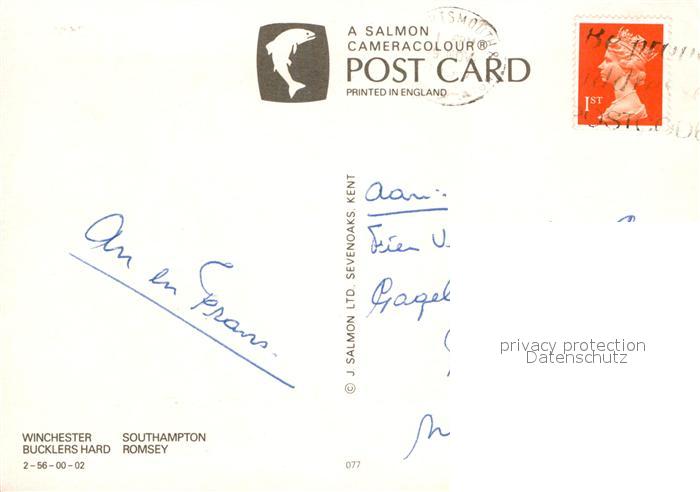 A SALMON
CAMERACOLOUR®
POST CARD
PRINTED IN ENGLAND
1ST
An en Frans.
© J. SALMON LTD, SEVENOAKS, KENT
aan:
Fien V
Gagel
privacy protection
Datenschutz
WINCHESTER SOUTHAMPTON
BUCKLERS HARD ROMSEY
2-56-00-02
077